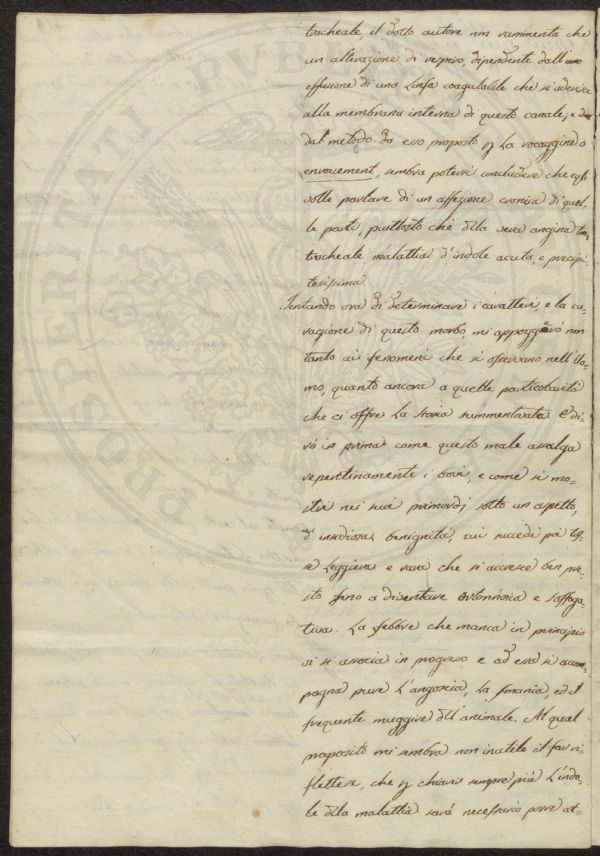 tracheale, il dotto autore non rammenta che
un alterazione di respiro, dipendente dall'
effusione di una Linfa coagulabile che si aderisce
alla membrana interna di questo canale; e
dal metodo da esso proposto p La vocaggine o
enrouement, sembra potersi concludere che egli
volle parlare di un affezione cronica di quel-
le parti, piuttosto che dlla vera angina
tracheale malattia d'indole acuta, e precipi-
tosissima
Tentando ora di determinare i caratteri, e la cu-
ragione di questo morbo, mi appoggerò non
tanto ai fenomeni che si osservano nell'Uo-
mo, quanto ancora a quelle particolarità
che ci offre La storia summentovata E di-
rò in prima come questo male assalga
repentinamente i bovi, e come si mo-
stri nei suoi primordj sotto un aspetto,
d'insidiosa benignità, cui succede poi tos-
se Leggiera e rara che si accresce ben pre-
sto fino a diventare e soffoga-
tiva. La febbre che manca in principio
vi si associa in progresso e ad essa si accom-
pagna pure L'angoscia, La smania, ed il
frequente muggire dll'animale. Al qual
proposito mi sembra non inutile il far ri-
flettere, che p chiarir sempre più L'indo-
le dlla malattia sarà necessario porre at-
PROSPERITATI PVBL